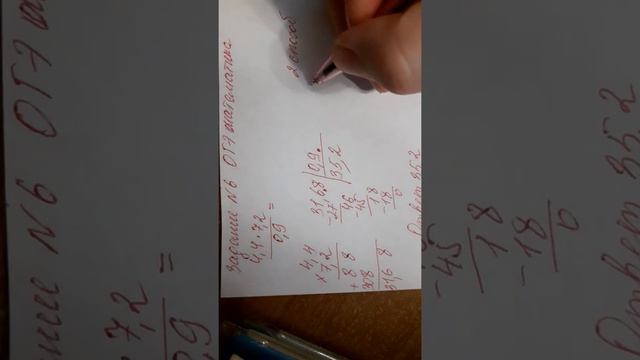 задание N6 ОГЭ математика
4,4·7,2
0,9
=
4,4
×7,2
+88
308
31,68
31,68 | 0,9
-27 | 35,2
46
-45
18
-18
0
Ответ 35,2
2 способ